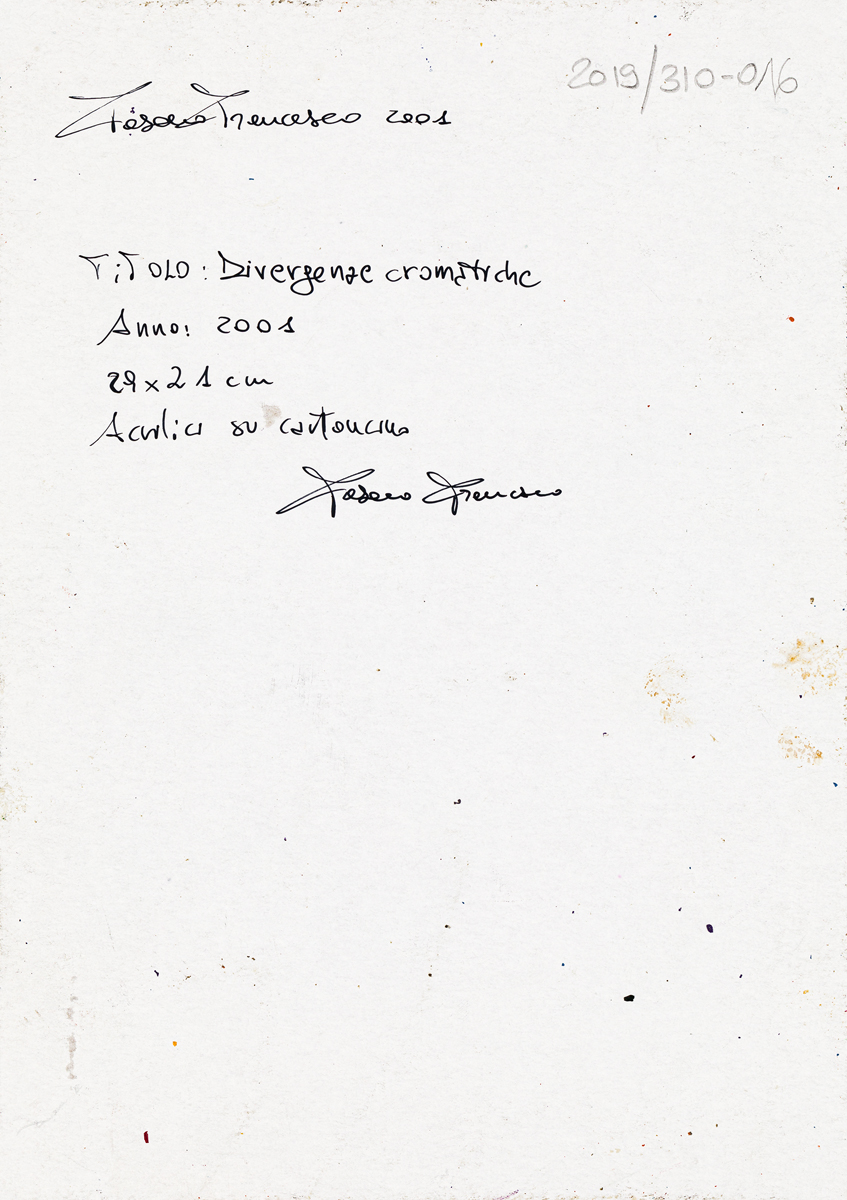 2019/310-016
Fasano Francesco 2001
TiTOLO: Divergenze cromatiche
Anno: 2001
29x21 cm
Acrilici su cartoncino
Fasano Francesco